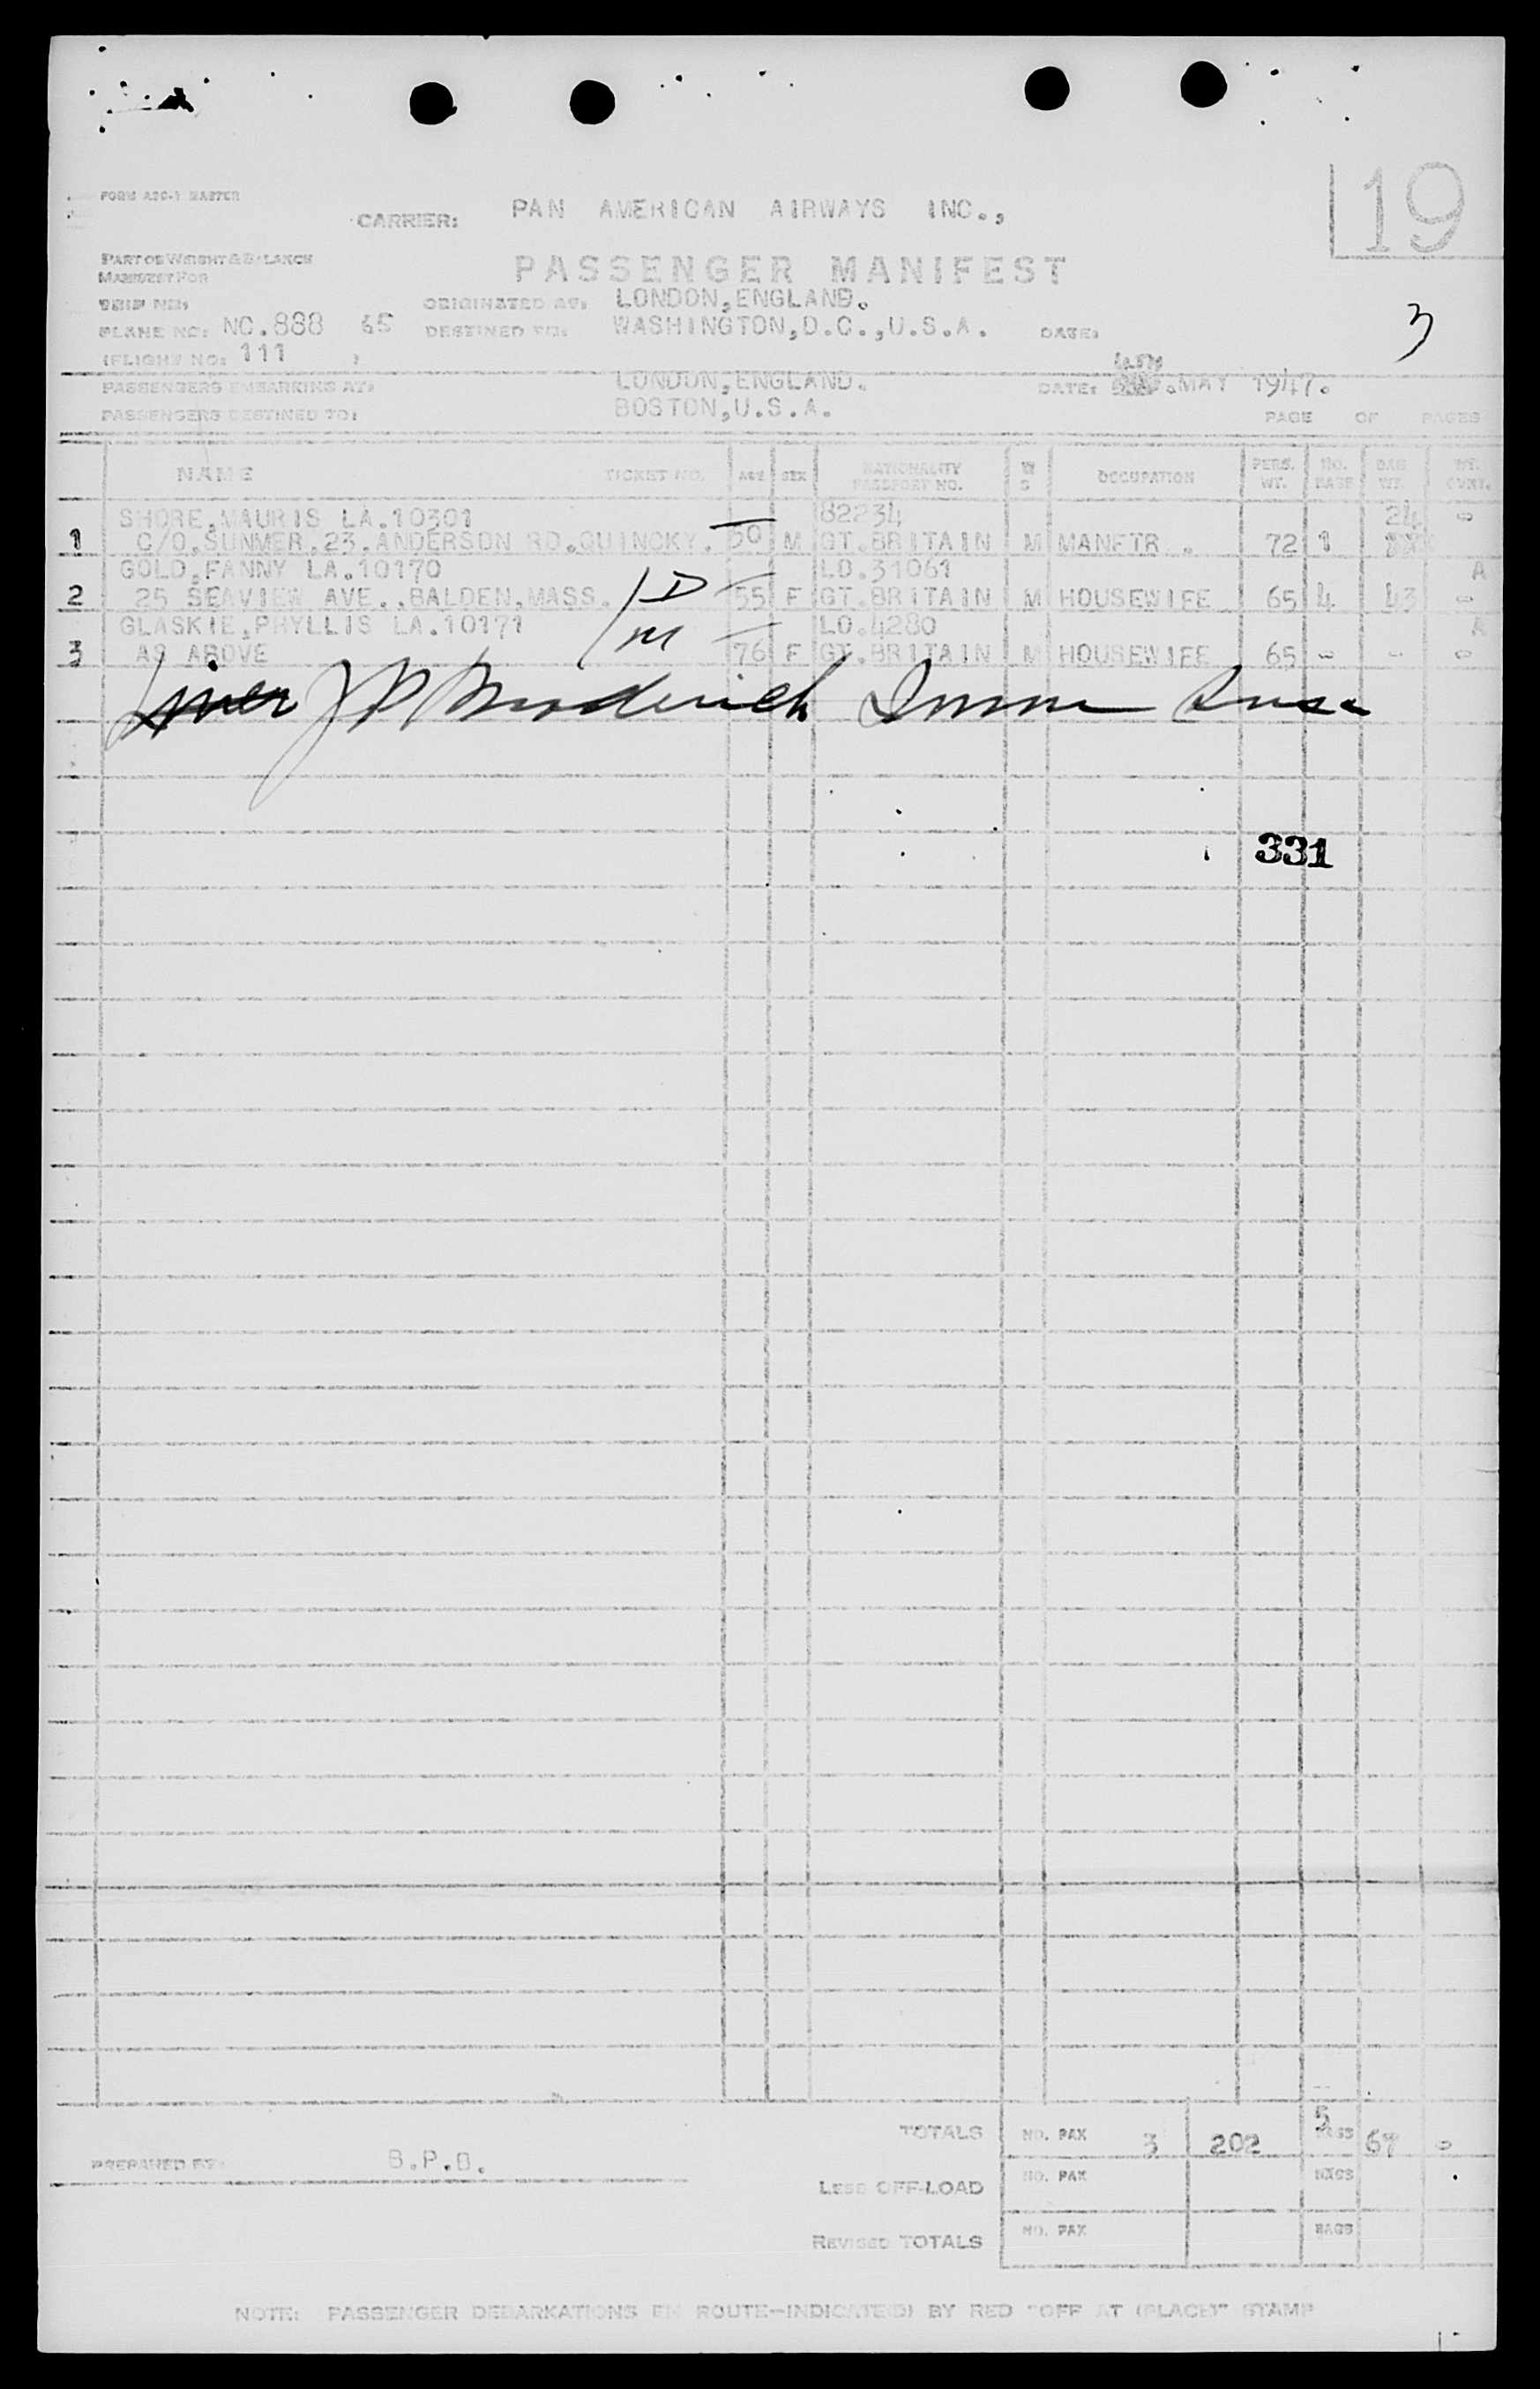 19
FORM ASC-1 MASTER
CARRIER: PAN AMERICAN AIRWAYS INC.,
PART OF WEIGHT & BALANCE
MANIFEST FOR
PASSENGER MANIFEST
TRIP NO:
ORIGINATED AT: LONDON,ENGLAND.
3
PLANE NO: NC.888 65 DESTINED TO: WASHINGTON,D.C.,U.S.A. DATE:
(FLIGHT NO: 111 )
PASSENGERS EMBARKING AT: LONDON,ENGLAND. DATE: .MAY 1947.
PASSENGERS DESTINED TO: BOSTON,U.S.A. PAGE OF PAGES
NAME TICKET NO. AGE SEX NATIONALITY PASSPORT NO. M S OCCUPATION PERS. WT. NO. BAGS BAG WT.
SHORE,MAURIS LA.10301 82234 24 0
1 C/O.SUNMER.23.ANDERSON RD.QUINCKY. 50 M GT.BRITAIN M MANFTR . 72 1
GOLD,FANNY LA.10170 LO.31061 A
2 25 SEAVIEW AVE..BALDEN.MASS. D 55 F GT.BRITAIN M HOUSEWIFE 65 4 43 0
GLASKIE,PHYLLIS LA.10171 LO.4280 A
3 AS ABOVE M 76 F GT.BRITAIN M HOUSEWIFE 65 - - 0
J P Broderick Immn Insp
331
TOTALS NO. PAX 3 202 5 BAGS 67 0
PREPARED BY: B.P.B.
LESS OFF-LOAD NO. PAX BAGS
REVISED TOTALS NO. PAX BAGS
NOTE: PASSENGER DEBARKATIONS EN ROUTE-INDICATE(D) BY RED "OFF AT (PLACE)" STAMP